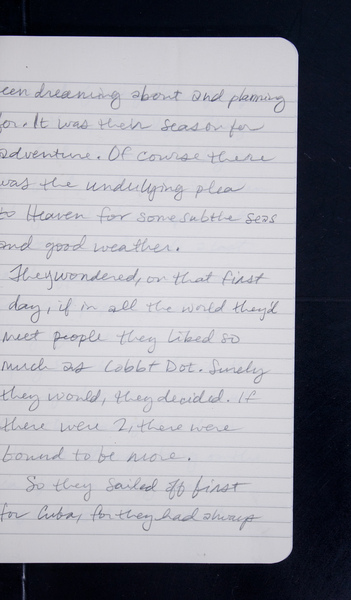 een dreaming about and planning
for. It was their season for
adventure. Of course there
was the undulying plea
to Heaven for some sabthe seas
and good weather.
They wondered, on that first
day, if in all the world they'd
meet people they liked so
much as Cobb & Dot. Surely
they would, they decided. If
there were 2, there were
bound to be more.
So they sailed off first
for Cuba, for they had always